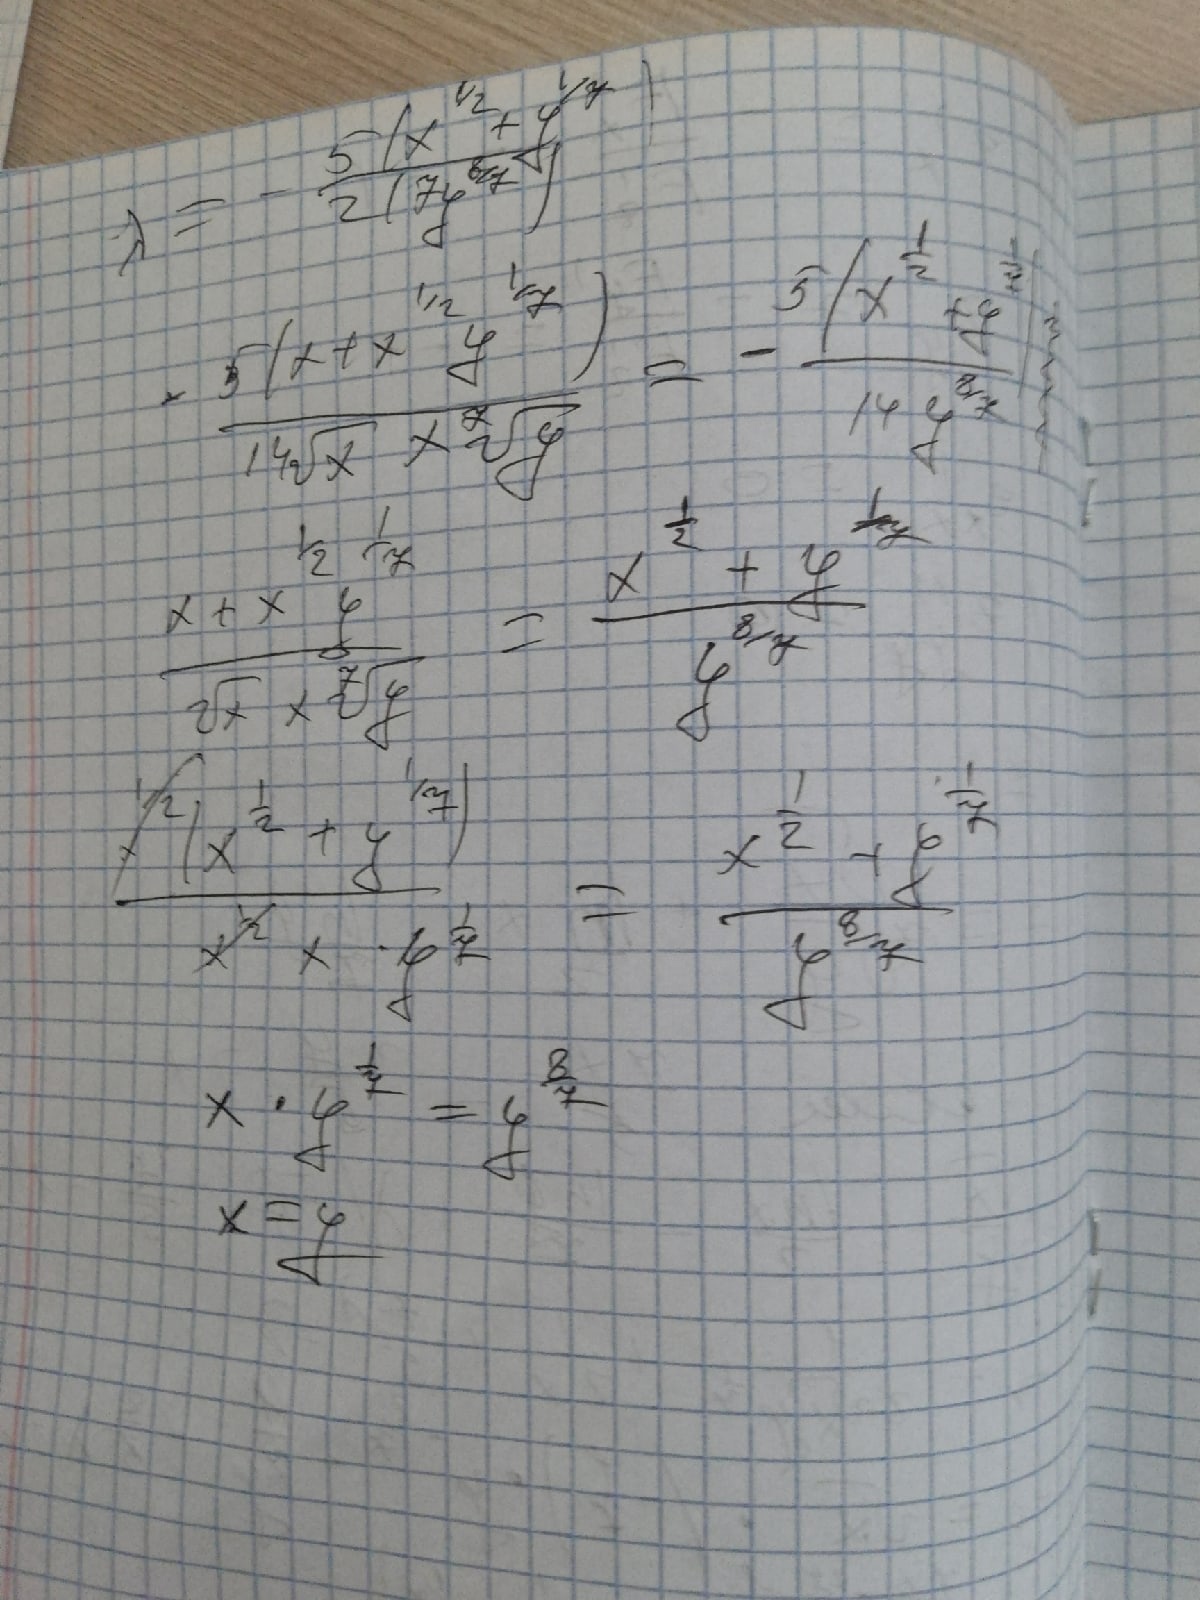 λ = - 5(x^1/2 + y^1/7) / 2(7y^8/7)
- 5(x + x^1/2 y^1/7) / 14√x x ⁷√y = - 5(x^1/2 + y^1/7) / 14 y^8/7
x + x^1/2 y^1/7 / √x x ⁷√y = x^1/2 + y^1/7 / y^8/7
x^1/2 (x^1/2 + y^1/7) / x^1/2 x · y^1/7 = x^1/2 + y^1/7 / y^8/7
x · y^1/7 = y^8/7
x = y